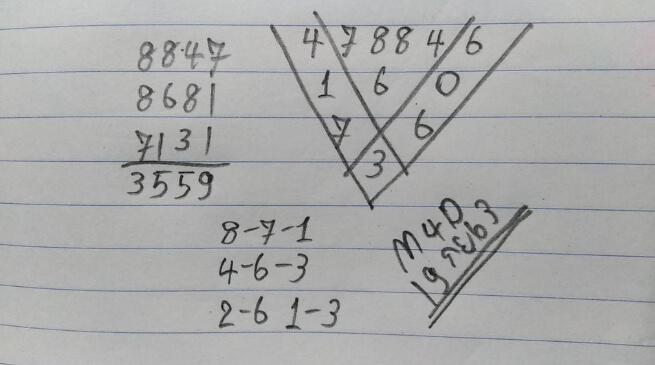 8847
8681
7131
3559
4 7 8 8 4 6
1 6 0
7 6
3
8-7-1
4-6-3
2-6 1-3
M4D